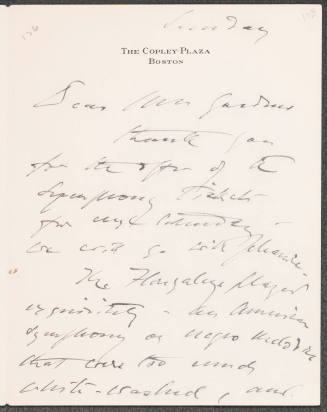 126
Sunday
THE COPLEY-PLAZA
BOSTON
Dear Mrs Gardner
Thank you
for the offer of the
Symphony Tickets
for next Saturday -
we will go with pleasure.
The Flonzaleys played
exquisitely - an American
Symphony on negro melodies
that were too much
white-washed, and